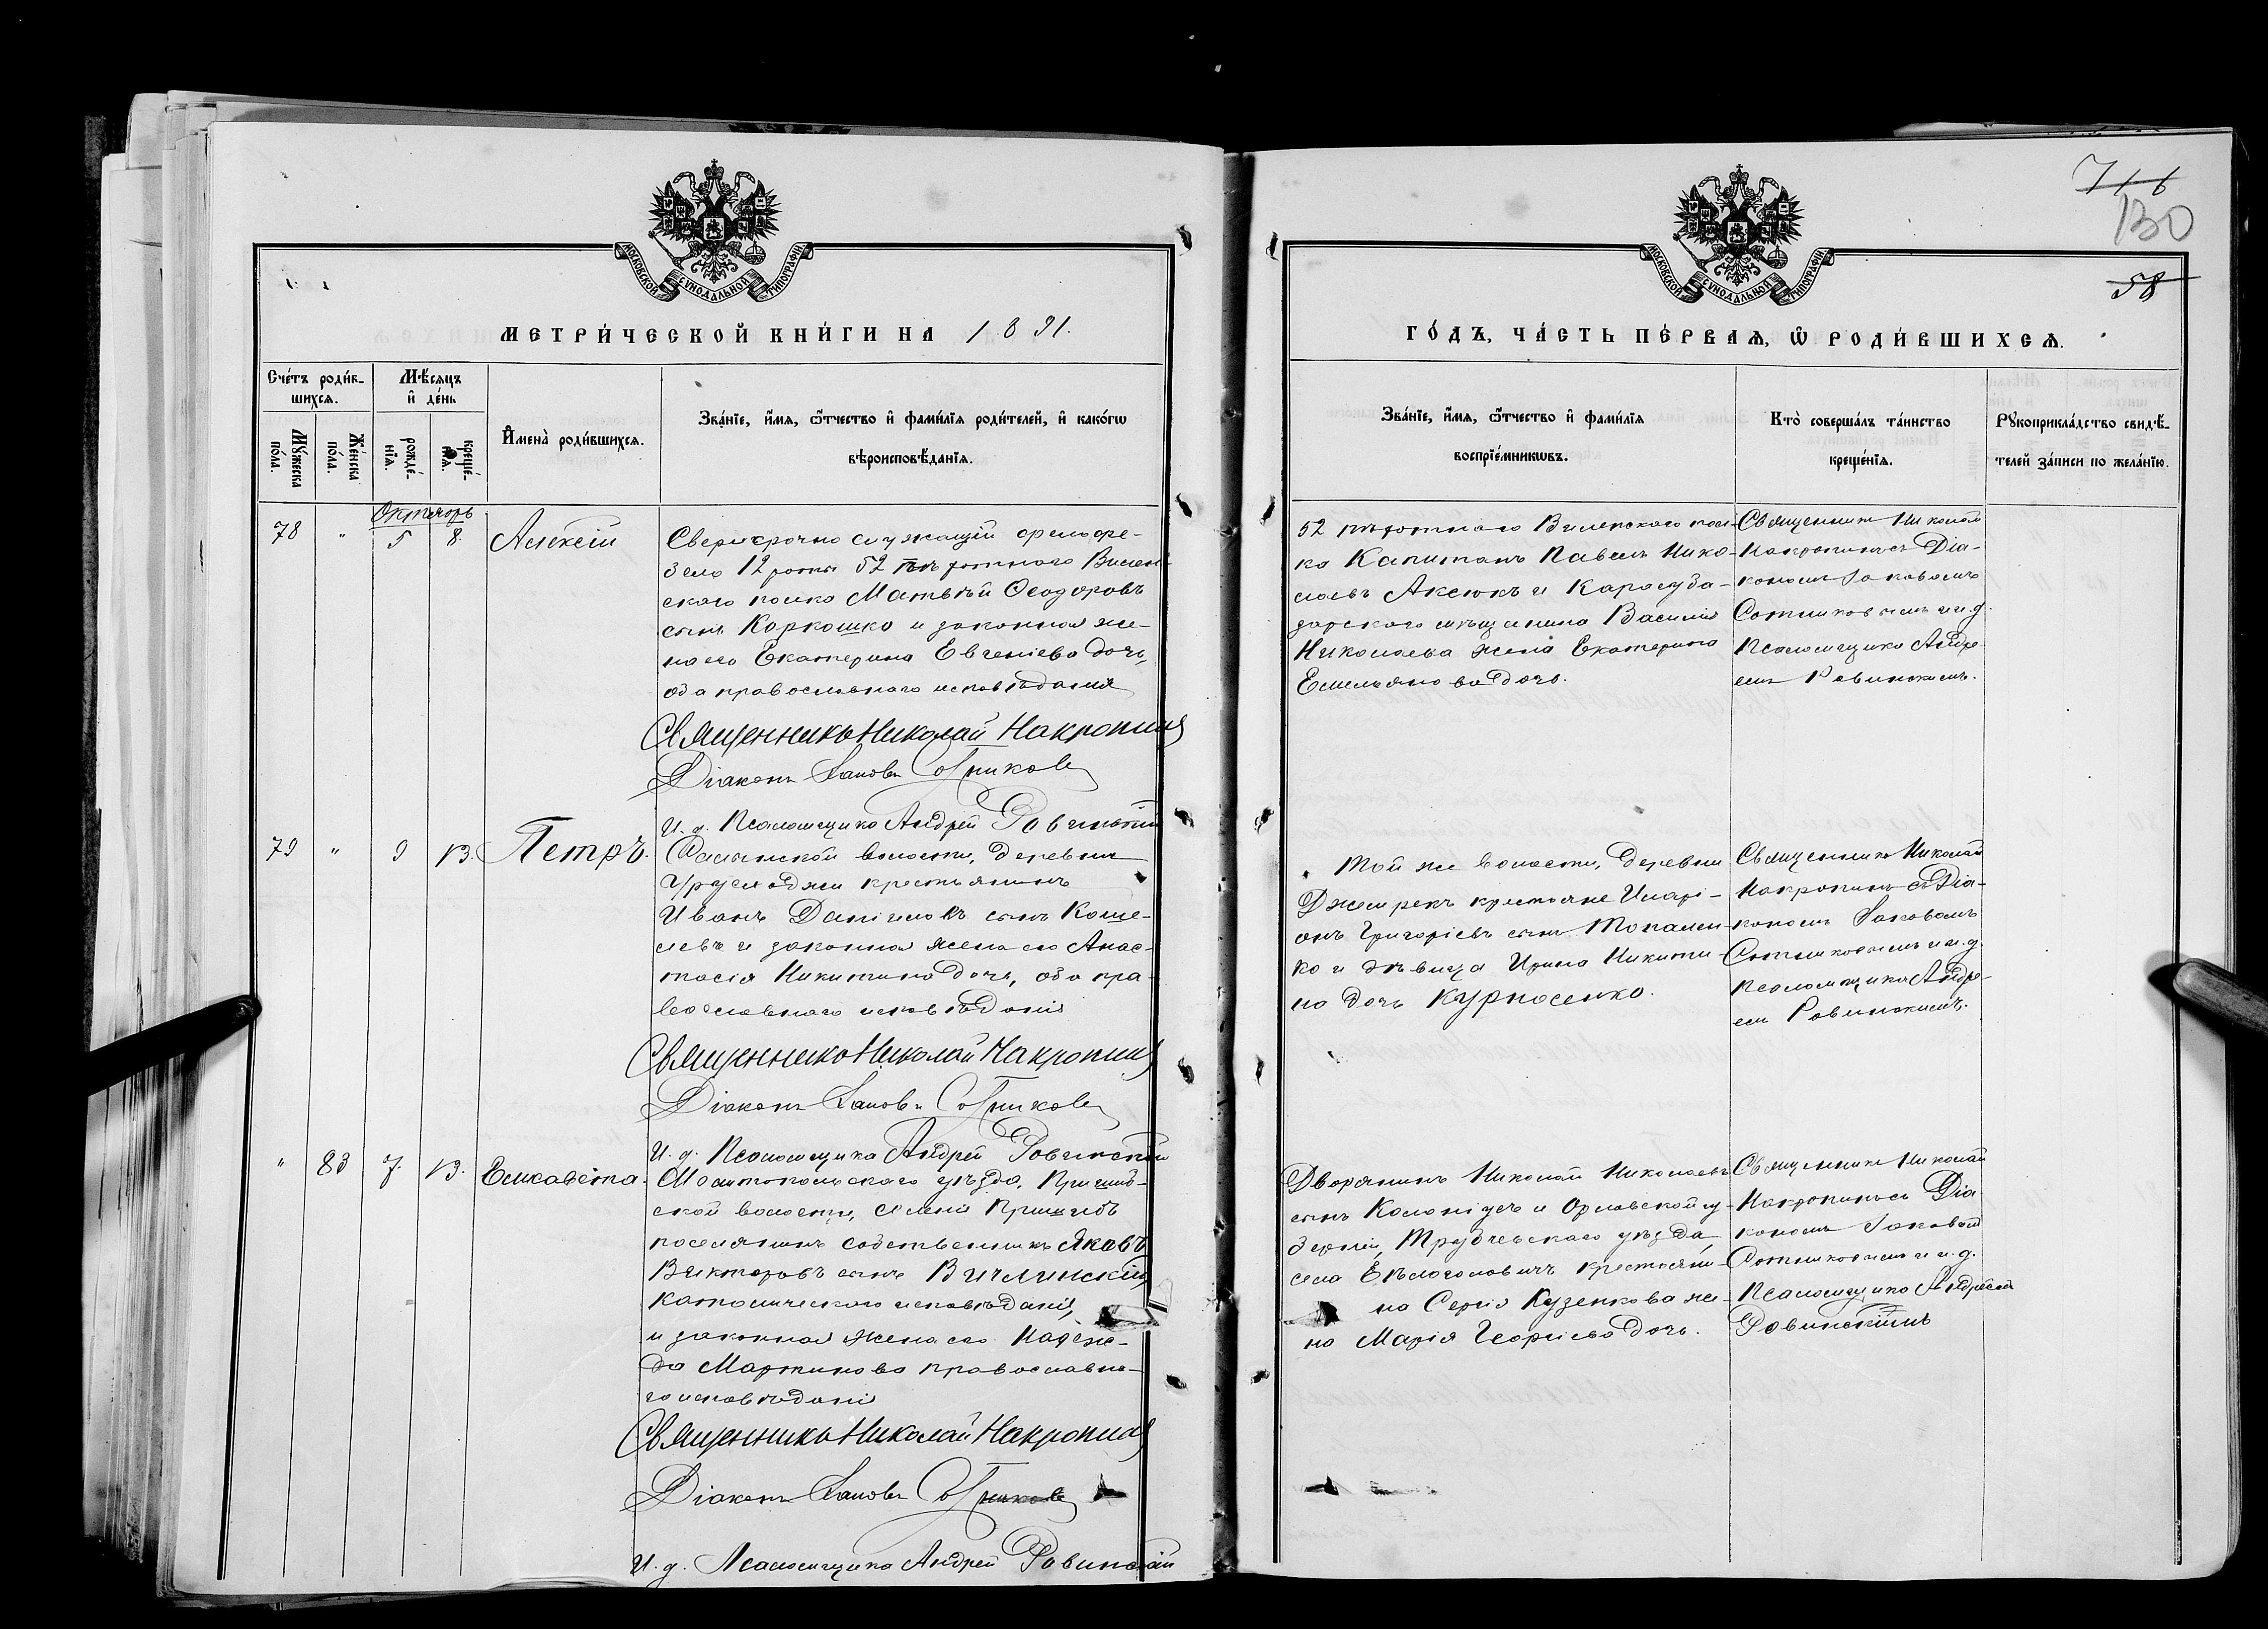 716
130
58
МОСКОВСКОЙ СѴНОДАЛЬНОЙ ТИПОГРАФІИ
МОСКОВСКОЙ СѴНОДАЛЬНОЙ ТИПОГРАФІИ
МЕТРИ́ЧЕСКОЙ КНИ́ГИ НА 1891.
ГО́ДЪ, ЧА́СТЬ ПЕ́РВАѦ, Ѿ РОДИ́ВШИХСѦ.
Сче́тъ роди́в-
шихсѧ.
Мꙋ́жеска
по́ла.
Же́нска
по́ла.
Мѣ́сѧцъ
и҆ де́нь
рожде́-
нїѧ.
креще́-
нїѧ.
И҆мена̀ роди́вшихсѧ.
Зва́нїе, и҆́мѧ, ѻ҆́тчество и҆ фами́лїѧ роди́телей, и҆ како́гѡ
вѣроисповѣ́данїѧ.
Зва́нїе, и҆́мѧ, ѻ҆́тчество и҆ фами́лїѧ
воспрїе́мникѡвъ.
Кто̀ соверша́лъ та́инство
креще́нїѧ.
Рꙋкоприкла́дство свидѣ́-
телей за́писи по жела́нїю.
Октябрь
78 " 5 8. Алексѣй
Сверхсрочно служащій фельдфе-
бель 12 роты 52 пѣхотнаго Вилен-
скаго полка Матвѣй Ѳеодоровъ
сынъ Коркошко и законная же-
на его Екатерина Евгеніева дочь,
оба православнаго исповѣданія
Священникъ Николай Накропинъ
Діаконъ Іаковъ Сотниковъ
И. д. Псаломщика Андрей Ровинскій
52 пѣхотнаго Виленскаго пол-
ка Капитанъ Павелъ Нико-
лаевъ Аксюкъ и Карасуба-
зарскаго мѣщанина Василія
Николаева жена Екатерина
Емельянова дочь.
Священникъ Николай
Накропинъ съ Діа-
кономъ Іаковомъ
Сотниковымъ и и.д.
Псаломщика Андре-
емъ Ровинскимъ.
79 " 9 13. Петръ.
волости, деревни
крестьянинъ
Иванъ Даніиловъ сынъ Коше-
левъ и законная жена его Анас-
тасія Никитина дочь, оба пра-
вославнаго исповѣданія
Священникъ Николай Накропинъ
Діаконъ Іаковъ Сотниковъ
И. д. Псаломщика Андрей Ровинскій
Той же волости, деревни
Джемрекъ крестьяне Илларі-
онъ Григоріевъ сынъ Топален-
ко и дѣвица Ирина Никити-
на дочь Курносенко.
Священникъ Николай
Накропинъ съ Діа-
кономъ Іаковомъ
Сотниковымъ и и.д.
Псаломщика Андре-
емъ Ровинскимъ.
" 83 7. 13. Елисавета.
Мелитопольскаго уѣзда, Пришиб-
ской волости, селенія Пришибъ
поселянинъ собственникъ Яковъ
Викторовъ сынъ Вичлинскій,
католическаго исповѣданія,
и законная жена его Надеж-
да Мартинова православна-
го исповѣданія
Священникъ Николай Накропинъ
Діаконъ Іаковъ Сотниковъ
И. д. Псаломщика Андрей Ровинскій
Дворянинъ Николай Николаевъ
сынъ и Орловской гу-
берніи, Трубчевскаго уѣзда,
села крестьяни-
на Сергія Кузенкова же-
на Марія Георгіева дочь.
Священникъ Николай
Накропинъ съ Діа-
кономъ Іаковомъ
Сотниковымъ и и.д.
Псаломщика Андреемъ
Ровинскимъ